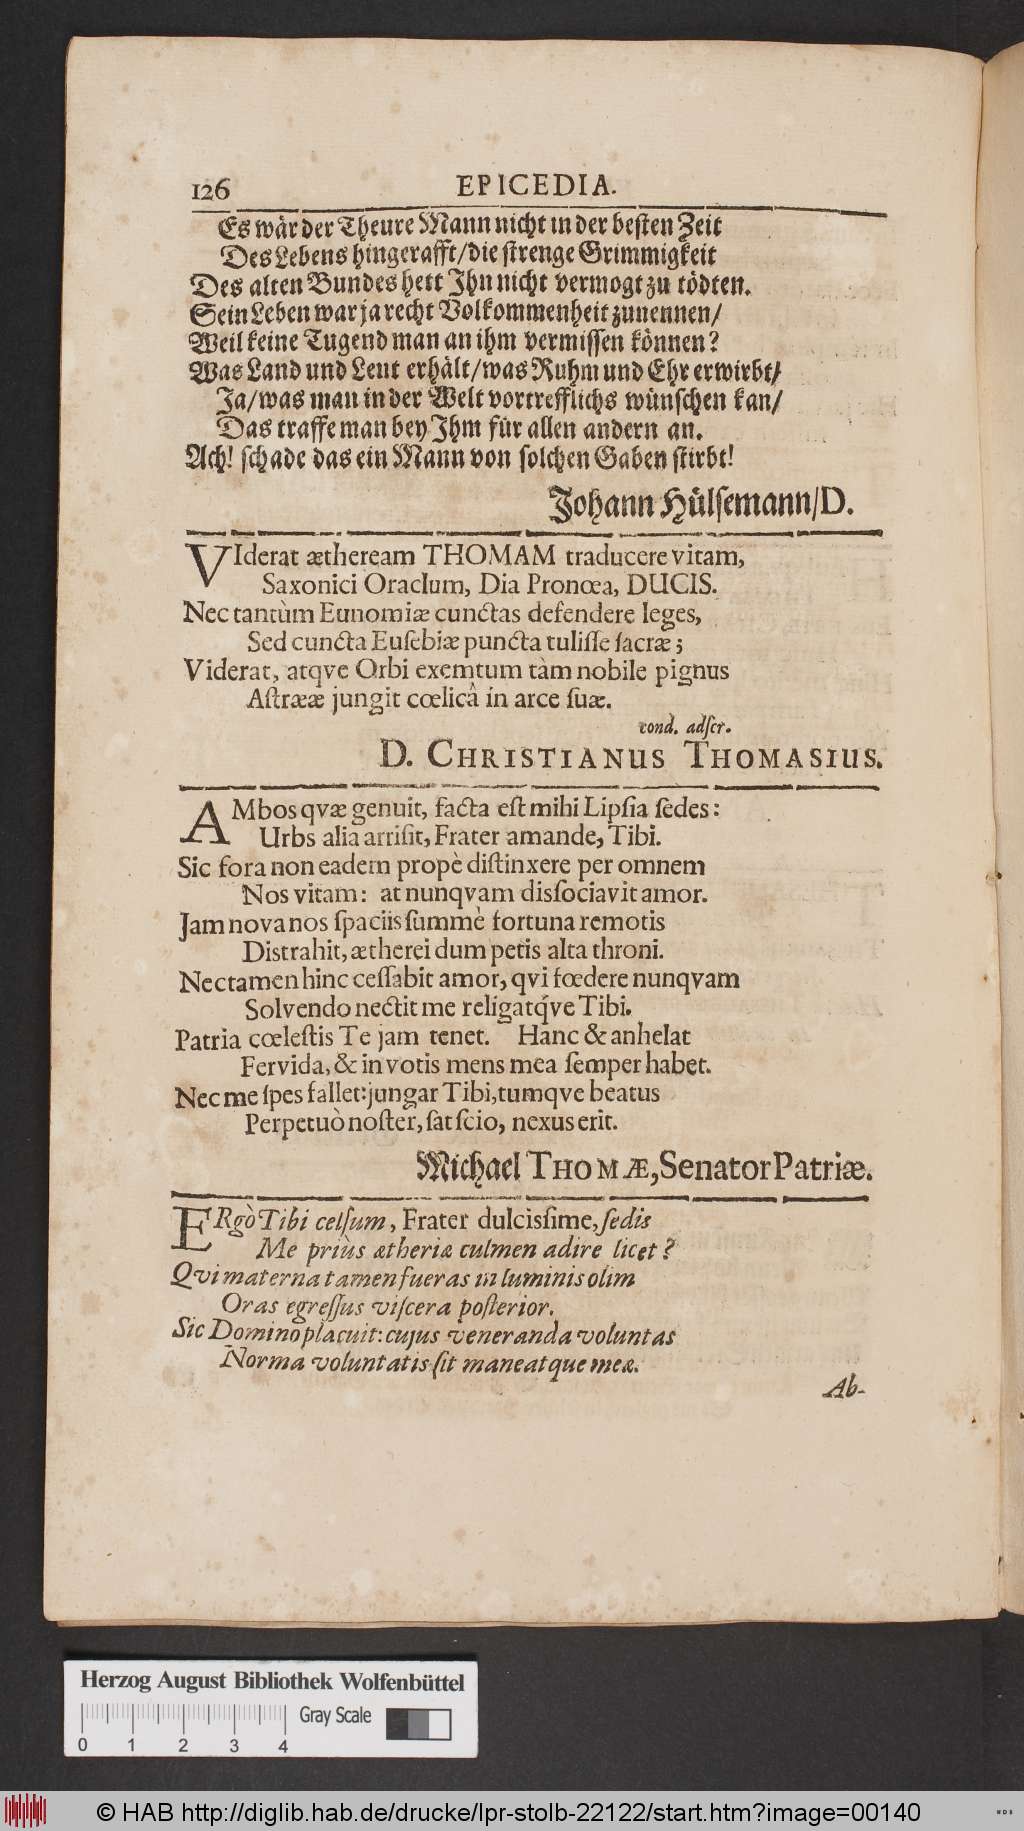 126 EPICEDIA.
Es wär der Theure Mann nicht in der besten Zeit
Des Lebens hingerafft/die strenge Grimmigkeit
Des alten Bundes hett Ihn nicht vermogt zu tödten.
Sein Leben war ja recht Volkommenheit zunennen/
Weil keine Tugend man an ihm vermissen können?
Was Land und Leut erhält/was Ruhm und Ehr erwirbt/
Ja/was man in der Welt vortrefflichs wünschen kan/
Das traffe man bey Ihm für allen andern an.
Ach! schade das ein Mann von solchen Gaben stirbt!
Johann Hülsemann/D.
VIderat æthereám THOMAM traducere vitam,
Saxonici Oraclum, Dia Pronœa, DUCIS.
Nec tantùm Eunomiæ cunctas defendere leges,
Sed cuncta Eusebiæ puncta tulisse sacræ;
Viderat, atqve Orbi exemtum tàm nobile pignus
Astrææ jungit cœlicâ in arce suæ.
cond. adscr.
D. CHRISTIANUS THOMASIUS.
AMbos qvæ genuit, facta est mihi Lipsia sedes:
Urbs alia arrisit, Frater amande, Tibi.
Sic fora non eadem propè distinxere per omnem
Nos vitam: at nunqvam dissociavit amor.
Jam nova nos spaciis summè fortuna remotis
Distrahit, ætherei dum petis alta throni.
Nec tamen hinc cessabit amor, qvi fœdere nunqvam
Solvendo nectit me religatq́ve Tibi.
Patria cœlestis Te jam tenet. Hanc & anhelat
Fervida, & in votis mens mea semper habet.
Nec me spes fallet: jungar Tibi, tumqve beatus
Perpetuò noster, sat scio, nexus erit.
Michael THOMÆ, Senator Patriæ.
ERgò Tibi celsum, Frater dulcissime, sedis
Me priùs ætheriæ culmen adire licet?
Qvi materna tamen fueras in luminis olim
Oras egressus viscera posterior.
Sic Domino placuit: cujus veneranda voluntas
Norma voluntatis sit maneatque meæ.
Ab-
Herzog August Bibliothek Wolfenbüttel
Gray Scale
0 1 2 3 4
© HAB http://diglib.hab.de/drucke/lpr-stolb-22122/start.htm?image=00140